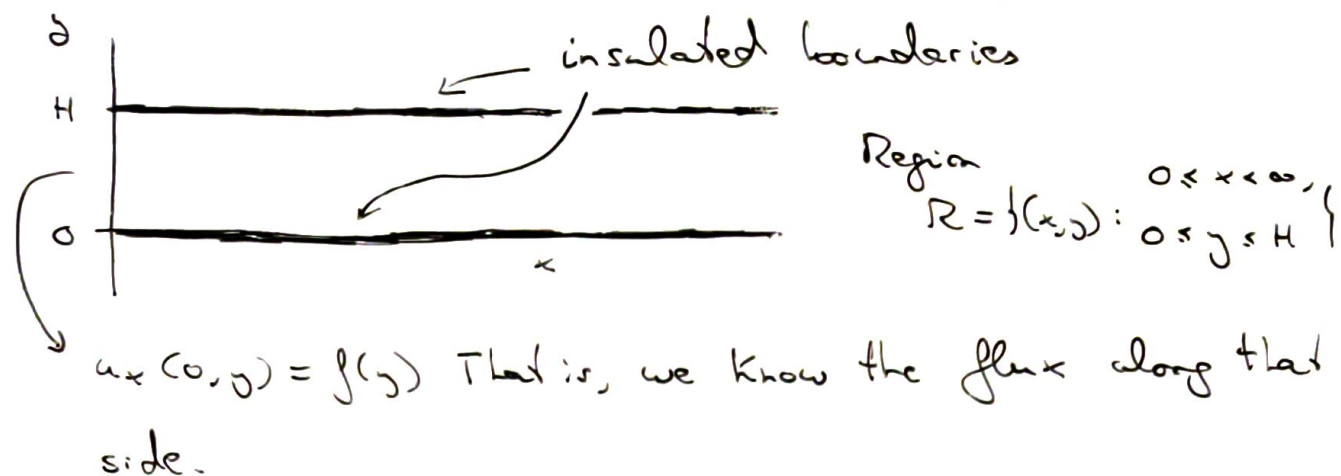 y
insulated boundaries
H
Region
0 ≤ x < ∞,
R = {(x,y) : 0 ≤ y ≤ H }
0
x
u_x (0, y) = f(y) That is, we know the flux along that
side.